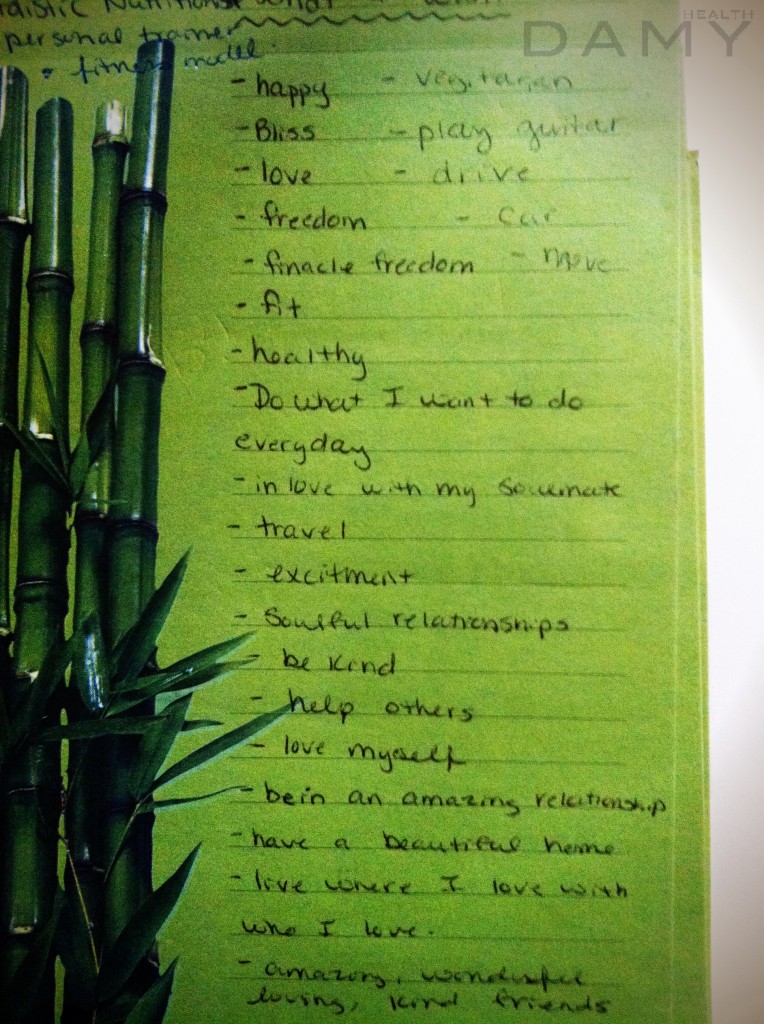 HEALTH
DAMY
Nutritionist what I want
personal trainer
fitness model.
- happy - vegitarian
- Bliss - play guitar
- love - drive
- freedom - Car
- finacle freedom - Move
- fit
- healthy
- Do what I want to do
everyday
- in love with my soulmate
- travel
- excitment
- Soulful relationships
- be kind
- help others
- love myself
- be in an amazing relationship
- have a beautiful home
- live where I love with
who I love.
- amazing, wonderful
loving, kind friends